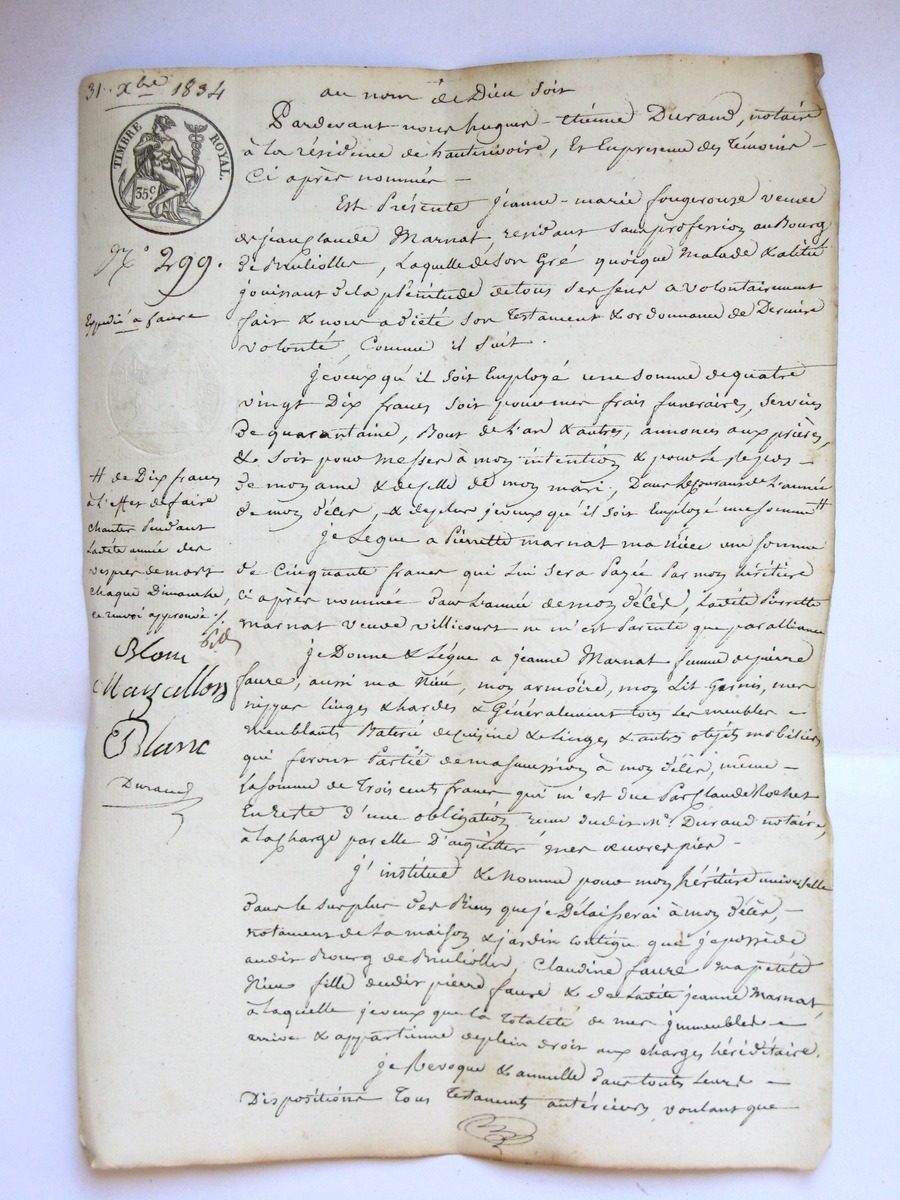 31. Xbre 1834
TIMBRE ROYAL.
35c.
N.° 299.
Expédié à faure
au nom de Dieu soit
Pardevant nous hugues-étienne Durand, notaire
à la résidence de hauterivoire, Et En presence des Témoins
Ci après nommés
Est Présente jeanne-marie fougerouze veuve
de jean Claude Marnat, residant sans profession au Bourg
de Bruliolles, Laquelle de son Gré quoique Malade & alitée
jouissant de la plénitude de tous ses sens a volontairement
fait & nous a dicté son Testament & ordonnance de Derniere
volonté Comme il suit.
je veux qu'il soit Employé une somme de quatre
vingt Dix francs soit pour mes frais funeraires, services
de quarantaine, Bout de L'an & autres, annonces aux prières,
& soit pour Messes à mon intention & pour Le repos
de mon ame & de celle de mon mari, Dans Le Courant de L'année
de mon Décès, & de plus je veux qu'il soit Employé une somme #
# de Dix francs
à l'effet de faire
chanter Pendant
Ladite année des
vespres de mort
chaque Dimanche,
ce renvoi approuvé ./.
Blanc
Mazallon
Blanc
Durand
je Legue a Pierrette marnat ma Nièce une somme
de Cinquante francs qui Lui sera Payée Par mon héritière
ci après nommée dans L'année de mon Décès, Ladite Pierrette
marnat veuve villicourt ne m'est Parente que par alliance
je Donne & Légue a jeanne Marnat femme de pierre
faure, aussi ma Nièce, mon armoire, mon Lit Garnis, mes
nippes linges & hardes & Généralement tous Les meubles
meublants Baterie de cuisine & Linges & autres objets mobiliers
qui feront Partie de ma succession à mon Décès, même
la somme de Trois cents francs qui m'est due Par Claude Rochet
En reste d'une obligation reçue dudit M.e Durand notaire,
à la charge par elle D'aquitter mes œuvres pies
j'institue & Nomme pour mon héritière universelle
dans le surplus des Biens que je Délaisserai à mon Décès,
notament de La maison & jardin contigu que je possède
audit Bourg de Brulioles, Claudine faure ma petite
Nièce fille dudit pierre faure & de Ladite jeanne Marnat,
à laquelle je veux que la Totalité de mes jmmeubles
arrive & appartienne de plein droit aux charges héréditaire.
je Revoque & annulle dans toutes Leurs
Dispositions Tous Testaments antérieurs, voulant que